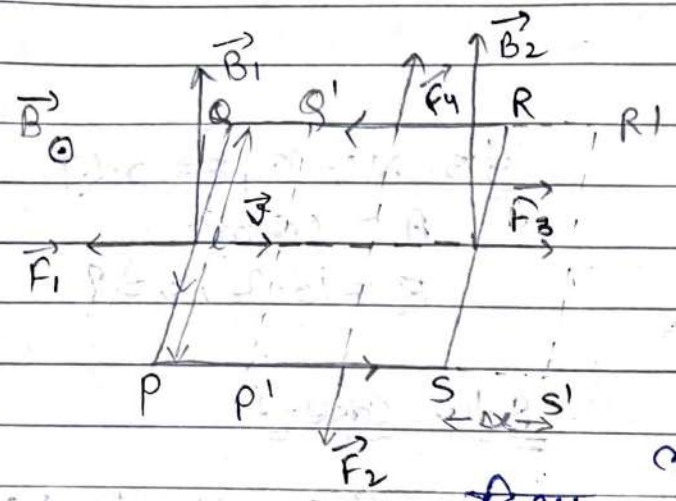 B⃗₁ B⃗₂
B⃗ ⊙ Q Q' F⃗₄ R R'
v⃗
l F⃗₃
F⃗₁
P P' S S'
Δx
F⃗₂